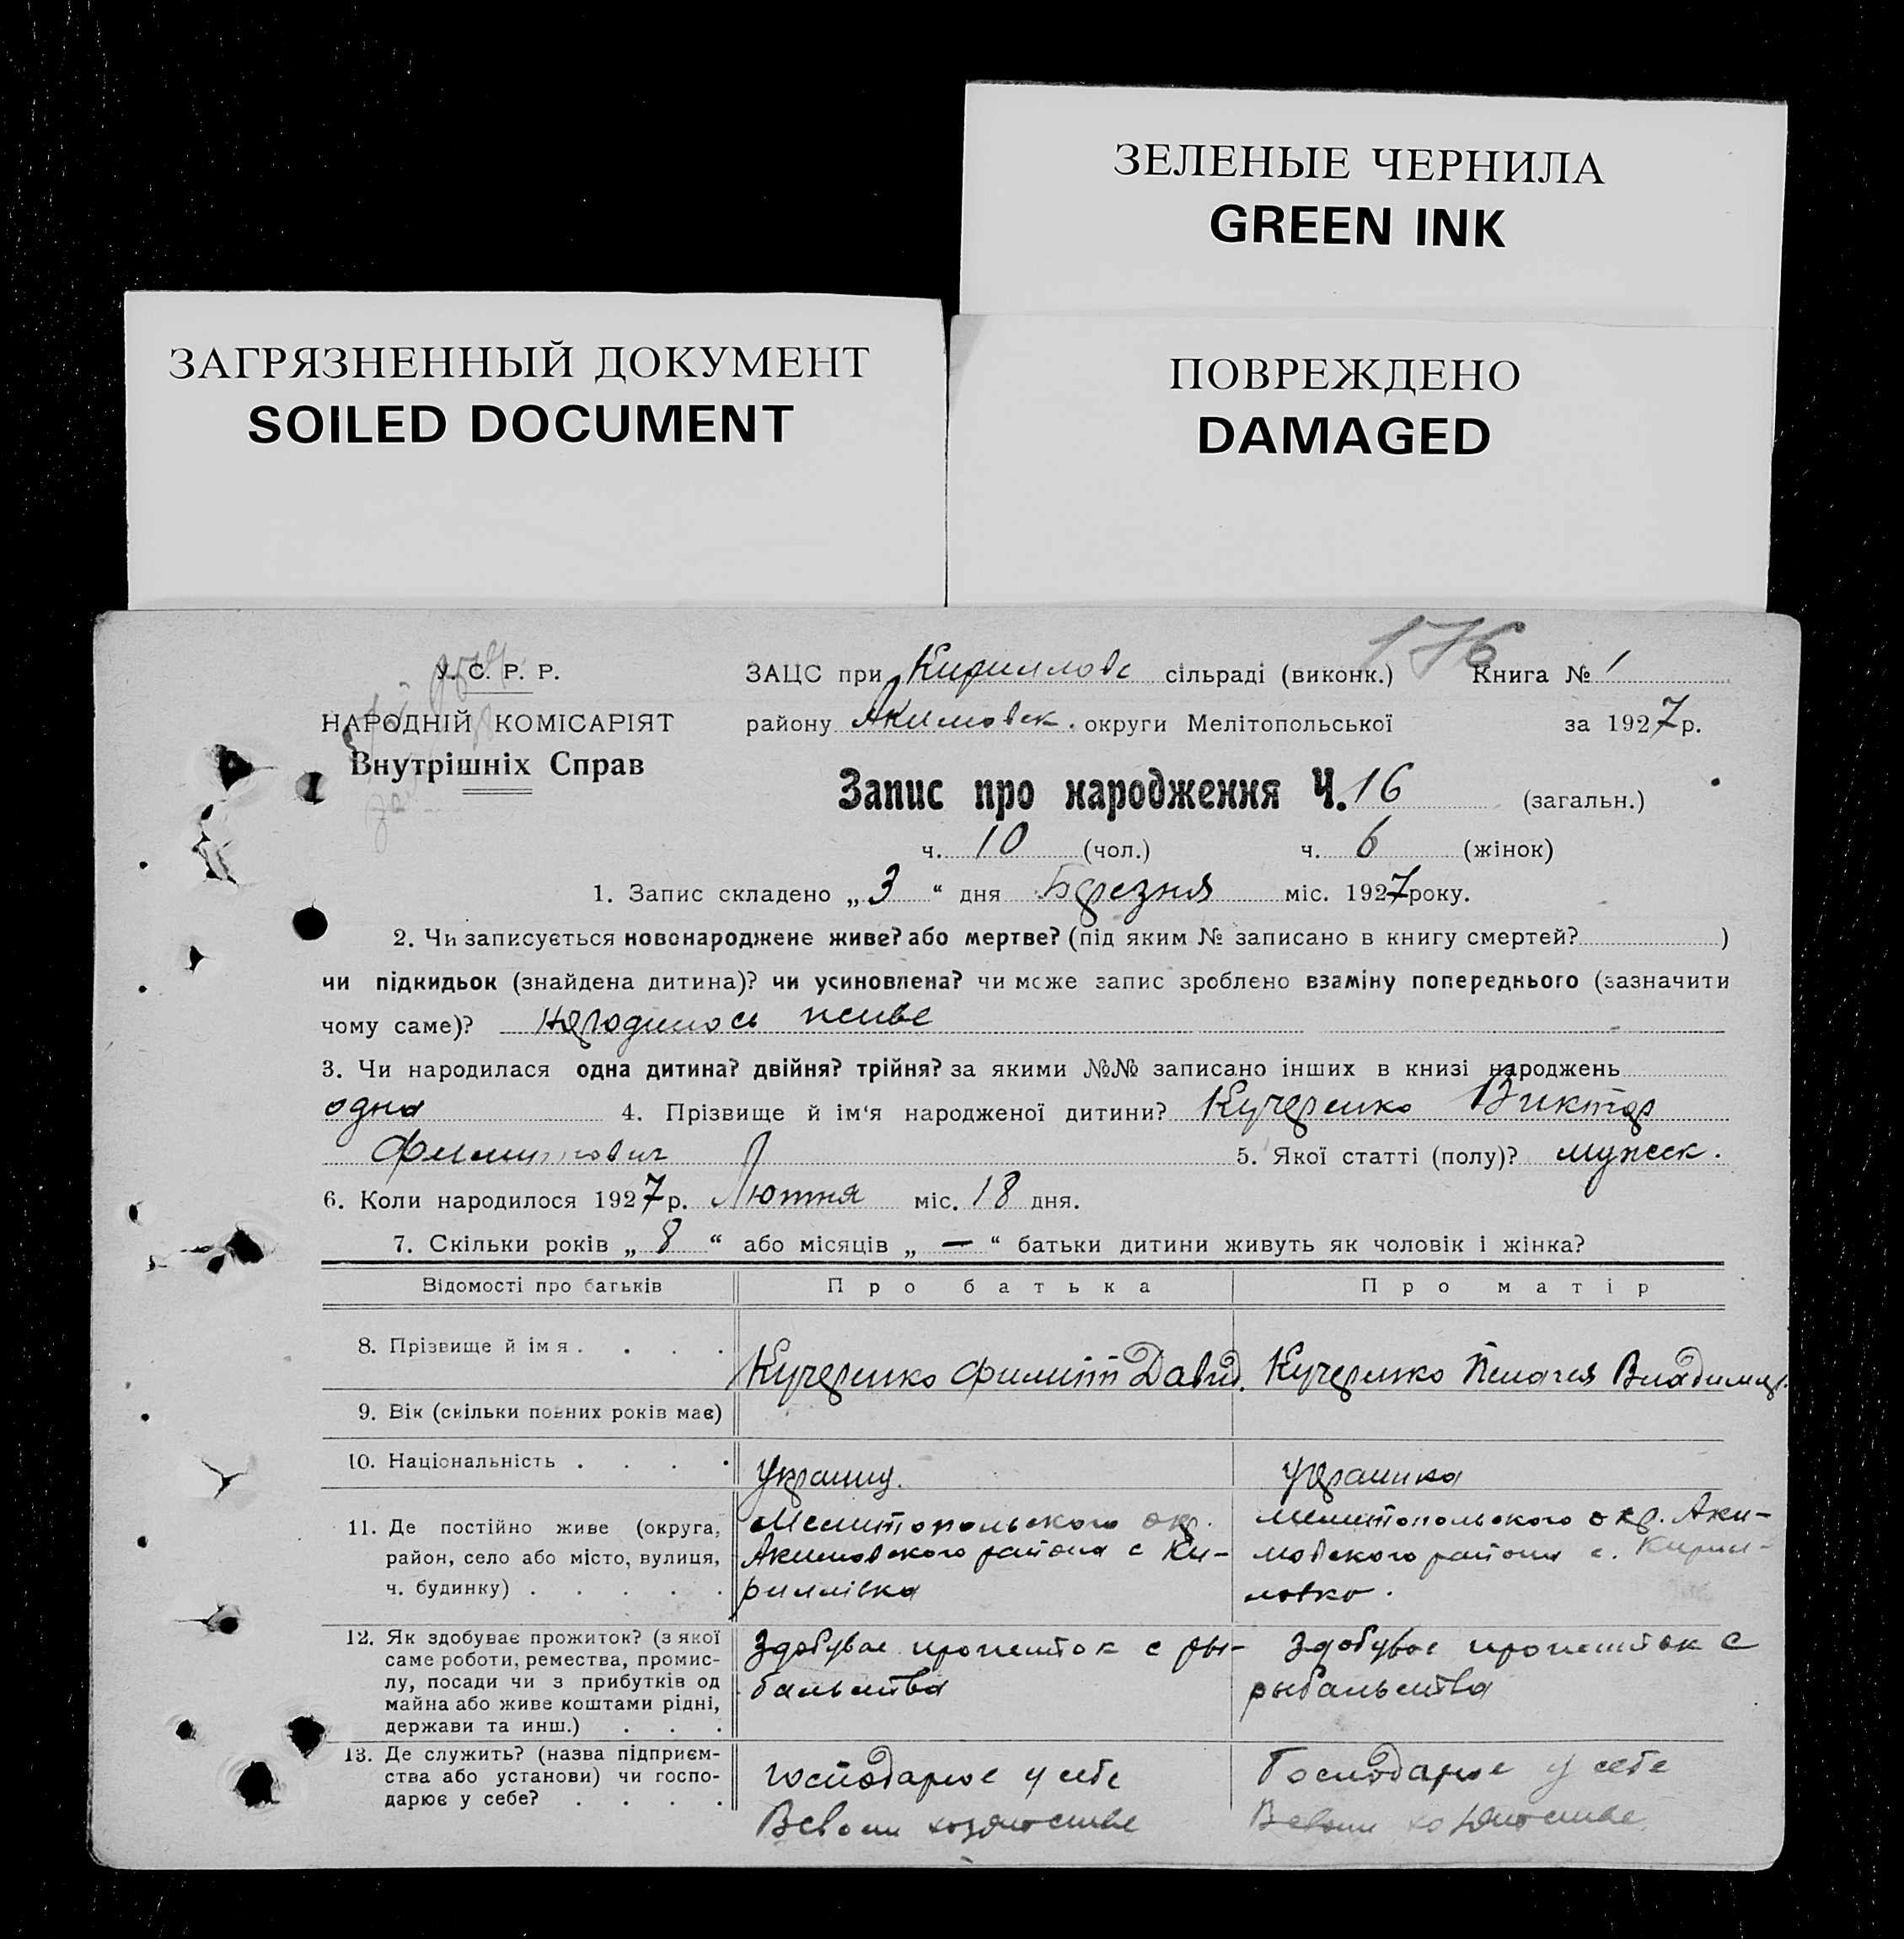 ЗЕЛЕНЫЕ ЧЕРНИЛА
GREEN INK
ЗАГРЯЗНЕННЫЙ ДОКУМЕНТ
SOILED DOCUMENT
ПОВРЕЖДЕНО
DAMAGED
176
У. С. Р. Р.
НАРОДНІЙ КОМІСАРІЯТ
Внутрішніх Справ
ЗАЦС при Кириллове сільраді (виконк.) Книга № 1
району Акимовск. округи Мелітопольської за 1927 р.
Запис про народження Ч. 16 (загальн.)
ч. 10 (чол.) ч. 6 (жінок)
1. Запис складено „ 3 “ дня Березня міс. 1927 року.
2. Чи записується новонароджене живе? або мертве? (під яким № записано в книгу смертей? )
чи підкидьок (знайдена дитина)? чи усиновлена? чи може запис зроблено взаміну попереднього (зазначити
чому саме)? Народилось живе
3. Чи народилася одна дитина? двійня? трійня? за якими №№ записано інших в книзі народжень
одна 4. Прізвище й ім‘я народженої дитини? Кучеренко Виктор
Филиппович 5. Якої статті (полу)? мужеск.
6. Коли народилося 1927 р. Лютня міс. 18 дня.
7. Скільки років „ 8 “ або місяців „ — “ батьки дитини живуть як чоловік і жінка?
Відомості про батьків Про батька Про матір
8. Прізвище й ім я . . . . Кучеренко Филипп Давид. Кучеренко Пелагея Владимир.
9. Вік (скільки повних років має)
10. Національність . . . . Украинц. Украинка
11. Де постійно живе (округа, Мелитопольского окр. Мелитопольского окр. Аки-
район, село або місто, вулиця, Акимовского района с Ки- мовского района с. Кирил-
ч. будинку) . . . . . риллівка ловка.
12. Як здобуває прожиток? (з якої Здобувае прожиток с ры- Здобувае прожиток с
саме роботи, ремества, промис-
лу, посади чи з прибутків од бальства рыбальства
майна або живе коштами рідні,
держави та инш.) . . .
13. Де служить? (назва підприєм- Господарює у себе Господарює у себе
ства або установи) чи госпо-
дарює у себе? . . . . В своем хозяйстве В своем хозяйстве